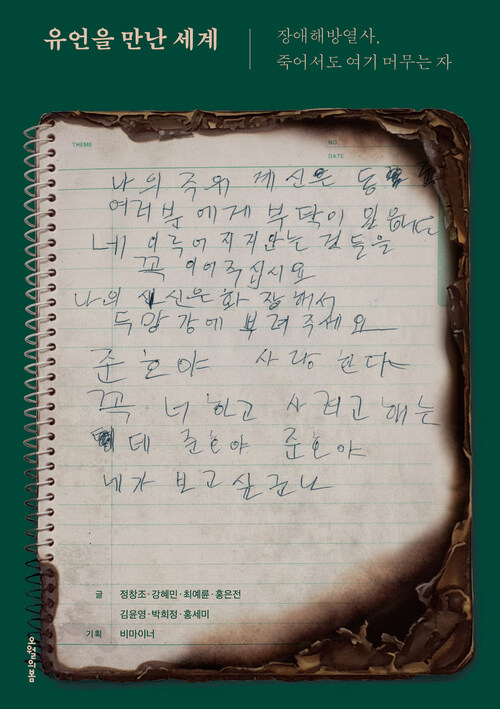 유언을 만난 세계
장애해방열사,
죽어서도 여기 머무는 자
THEME
NO.
DATE
나의 주위 계신는 동
여러분에게 부탁이 있읍니다
네 이루어지지안는 것들을
꼭 이어주십시요
나의 시신은 화장해서
두망강에 뿌려주세요
준호야 사랑한다
꼭 너하고 사려고 해는
데 준호야 준호야
네가 보고싶군나
글 장창조·강혜민·최예륜·홍은전
김윤영·박희정·홍세미
기획 비마이너
오월의봄